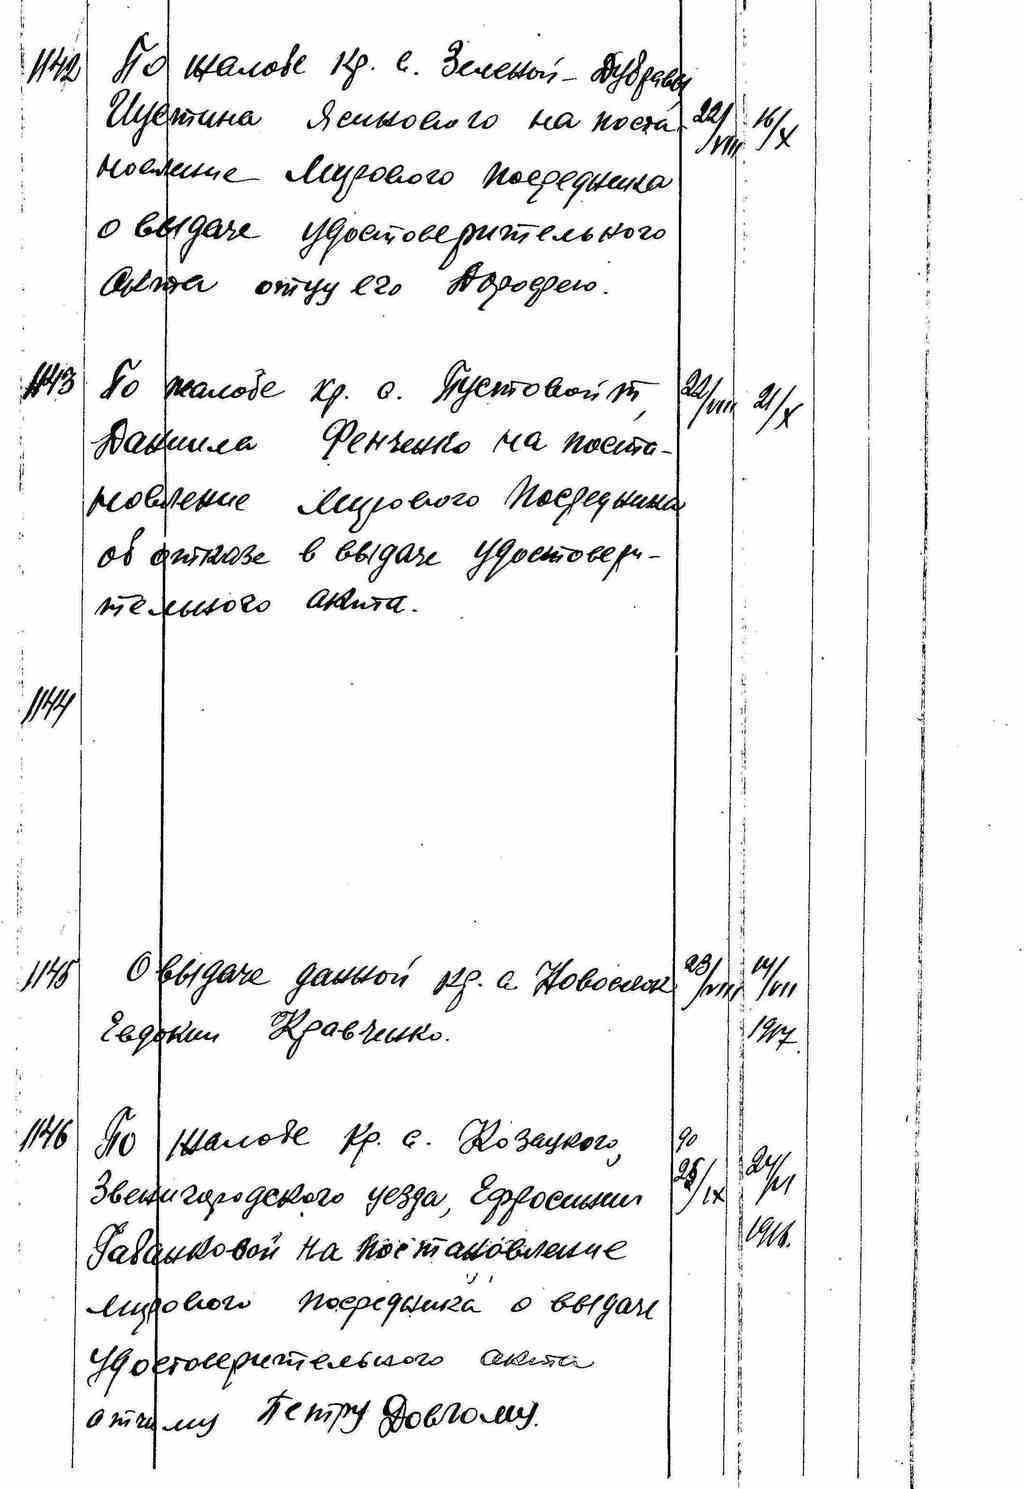 1142 По жалобе кр. с. Зеленой-Дубравы
Иустина Ясинового на поста- 22/VIII 16/X
новление Мирового Посредника
о выдаче удостоверительного
акта отцу его Дорофею.
1143 По жалобе кр. с. Пустовойт, 22/VIII 21/X
Даниила Фенченко на поста-
новление Мирового Посредника
об отказе в выдаче удостовери-
тельного акта.
1144
1145 О выдаче данной кр. с. Новоселок 23/VIII 14/VII
Евдокии Кравченко. 1917.
1146 По жалобе кр. с. Козацкого,
Звенигородского уезда, Ефросинии 25/IX 24/VI
Габанковой на постановление 1916.
мирового посредника о выдаче
удостоверительного акта
отчиму Петру Довгому.